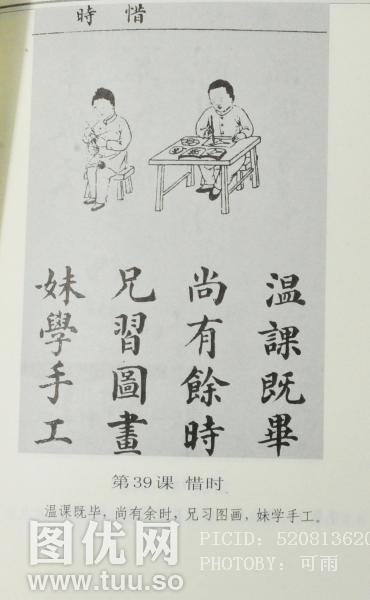 惜時
温課既畢
尚有餘時
兄習圖畫
妹學手工
第39课 惜时
温课既毕，尚有余时，兄习图画，妹学手工。
图优网
www.tuu.so
PICID: 520813620
PHOTOBY: 可雨